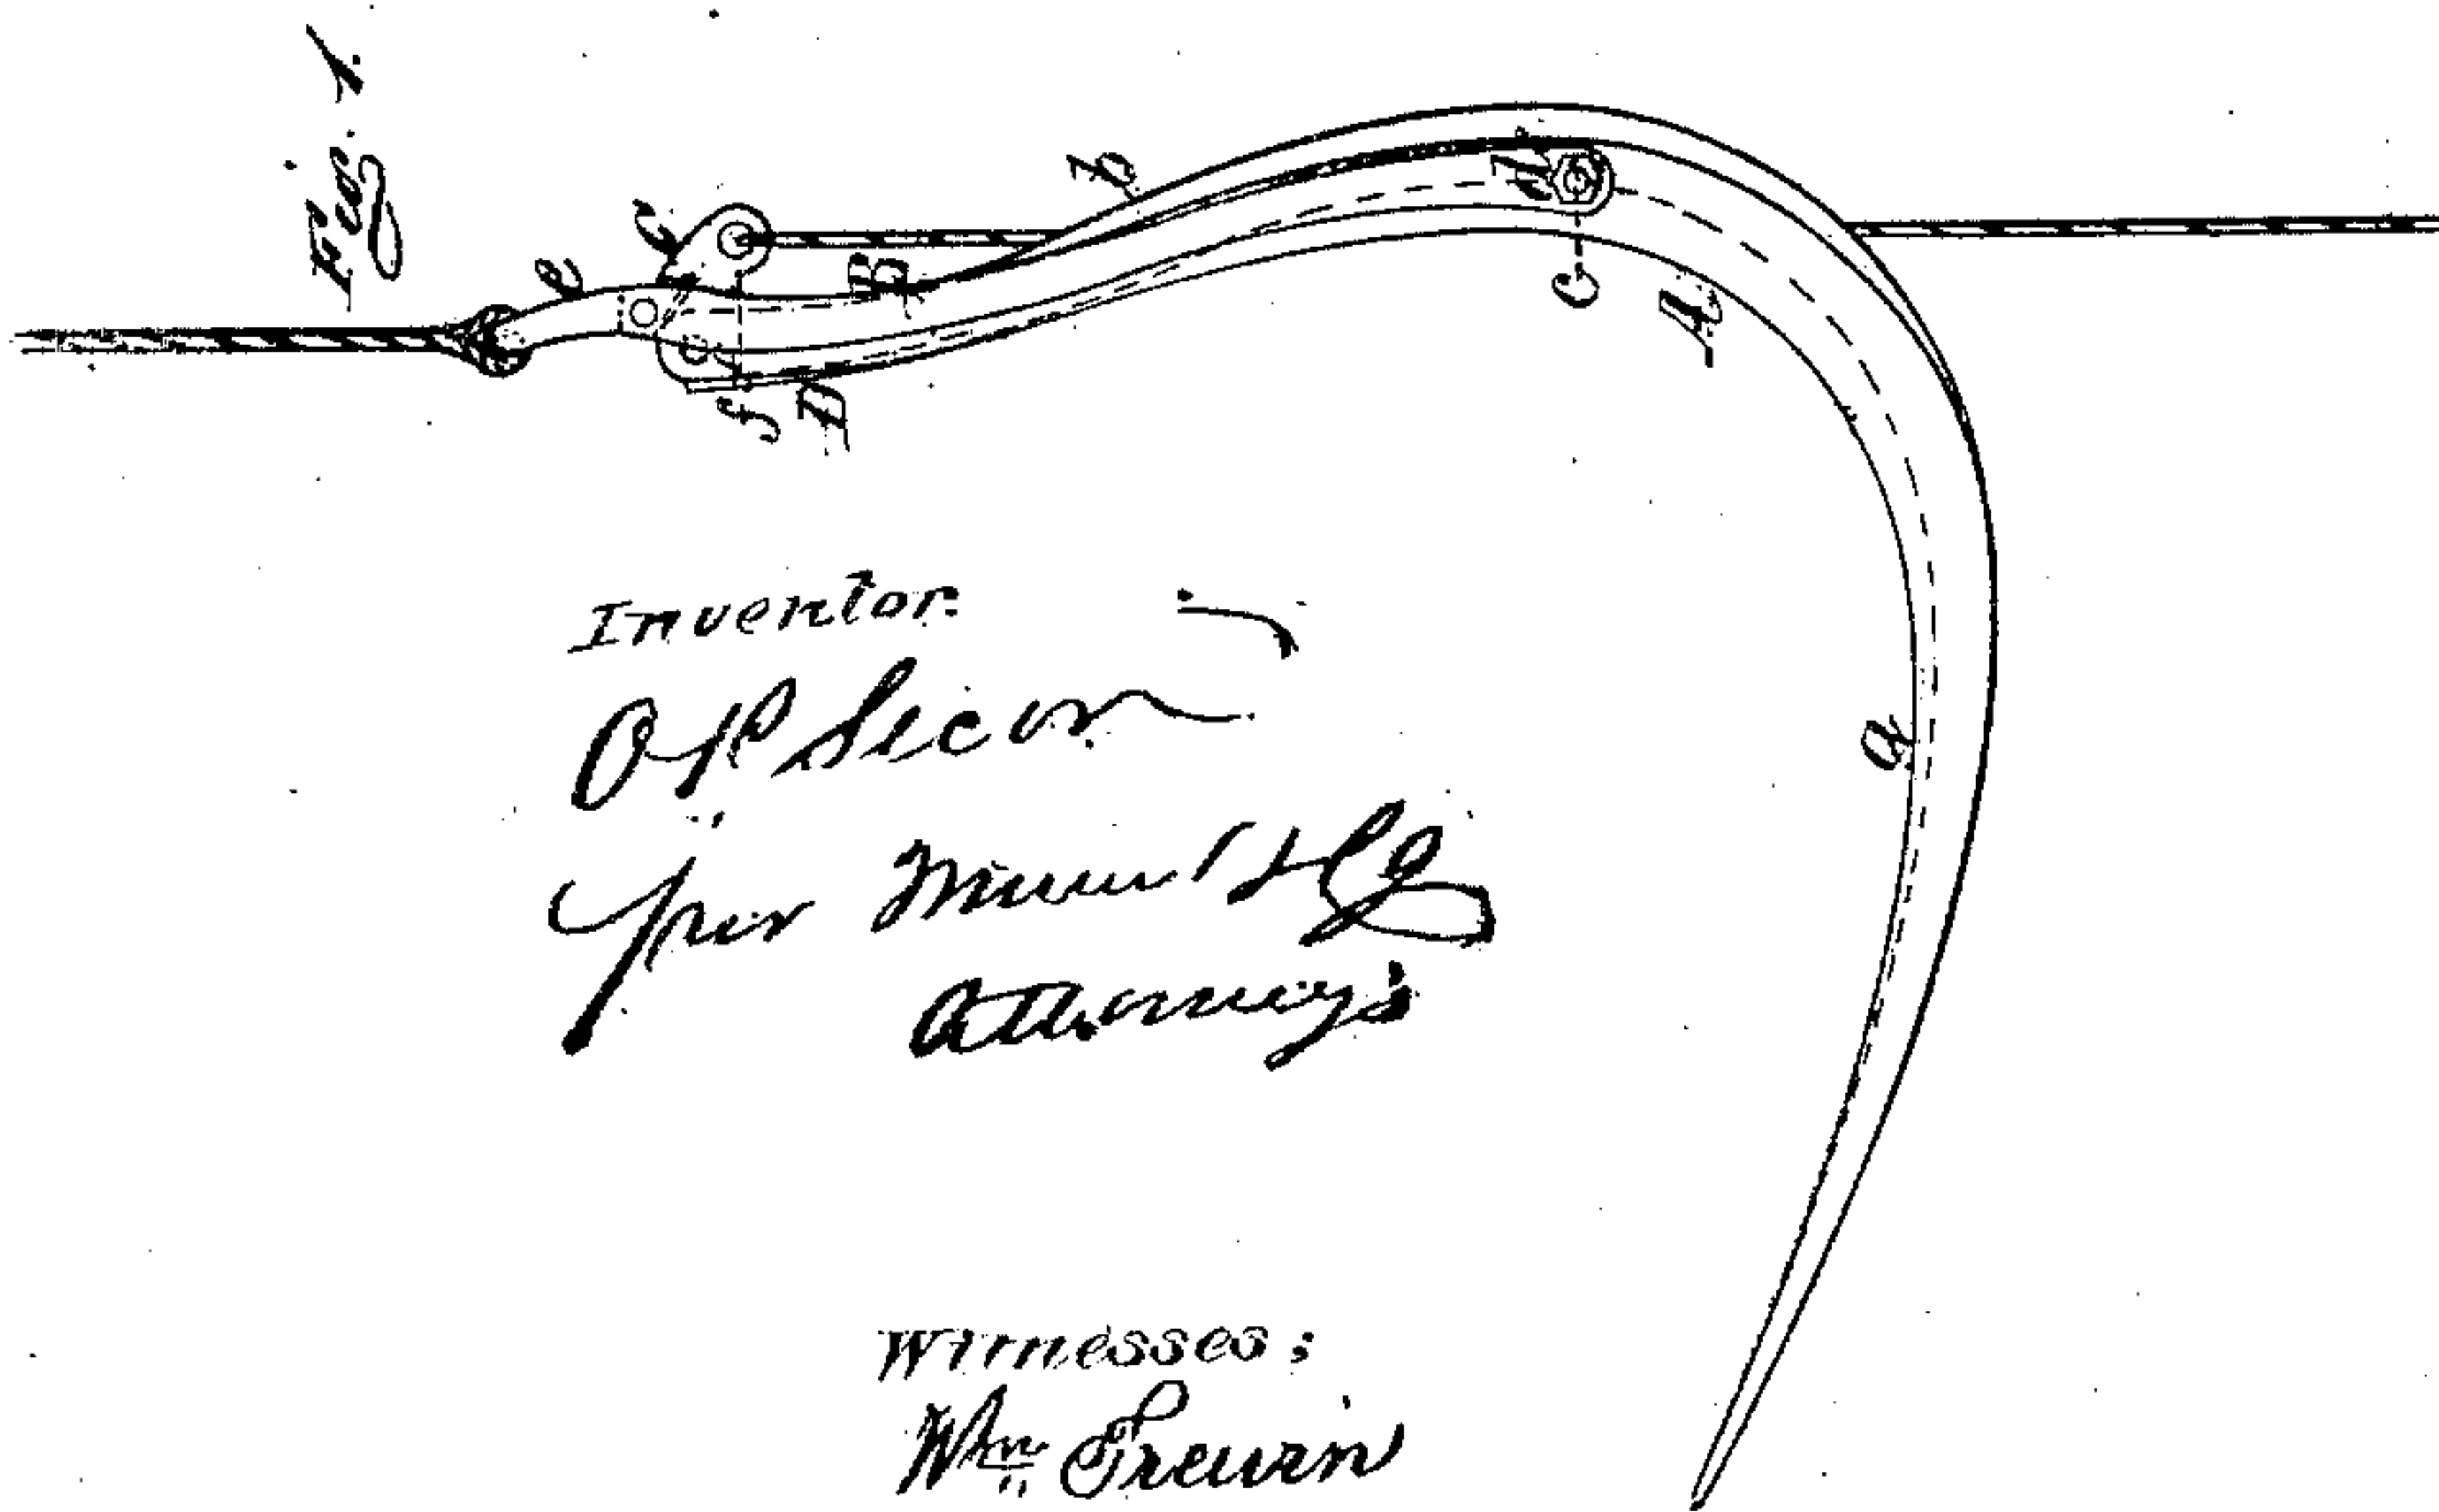 Fig. 1.
e
c
b
B
f
D
d
C
A
a
Inventor.
per Munn & Co
Attorneys
Witnesses;
Wm Trewin